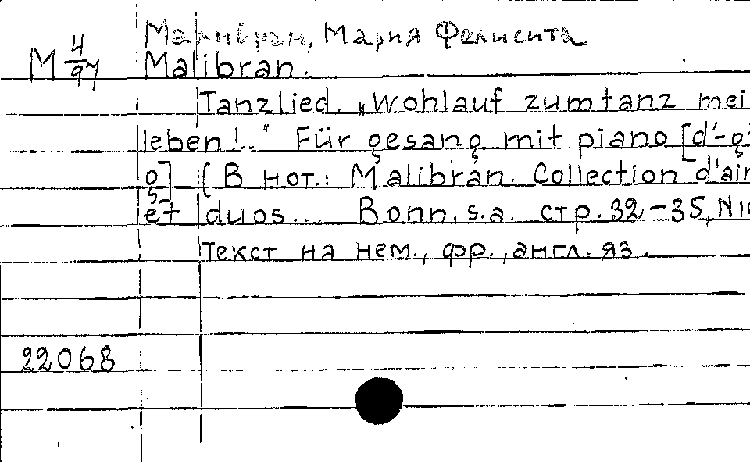 Малибран, Мария Фелисита
М 4/97 Malibran.
Tanzlied. „Wohlauf zum tanz mei
leben!.." Für gesang mit piano [d'-g²
g] (В нот.: Malibran. Collection d'air
et duos... Bonn, s.a. стр. 32-35, N 10
Текст на нем., фр., англ. яз.
22068